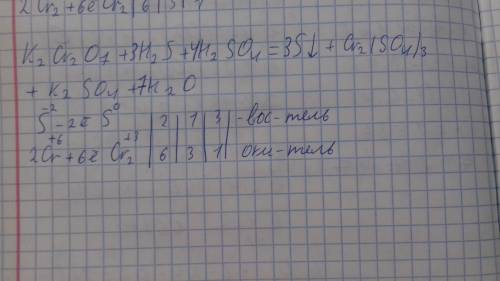 2Cr₂ + 6ē Cr₂ | 6 | 3 | 1
K₂Cr₂O₇ + 3H₂S + 4H₂SO₄ = 3S↓ + Cr₂(SO₄)₃
+ K₂SO₄ + 7H₂O
S⁻² - 2ē S⁰ | 2 | 1 | 3 | -вос-тель
2Cr⁺⁶ + 6ē Cr₂⁺³ | 6 | 3 | 1 | оки-тель